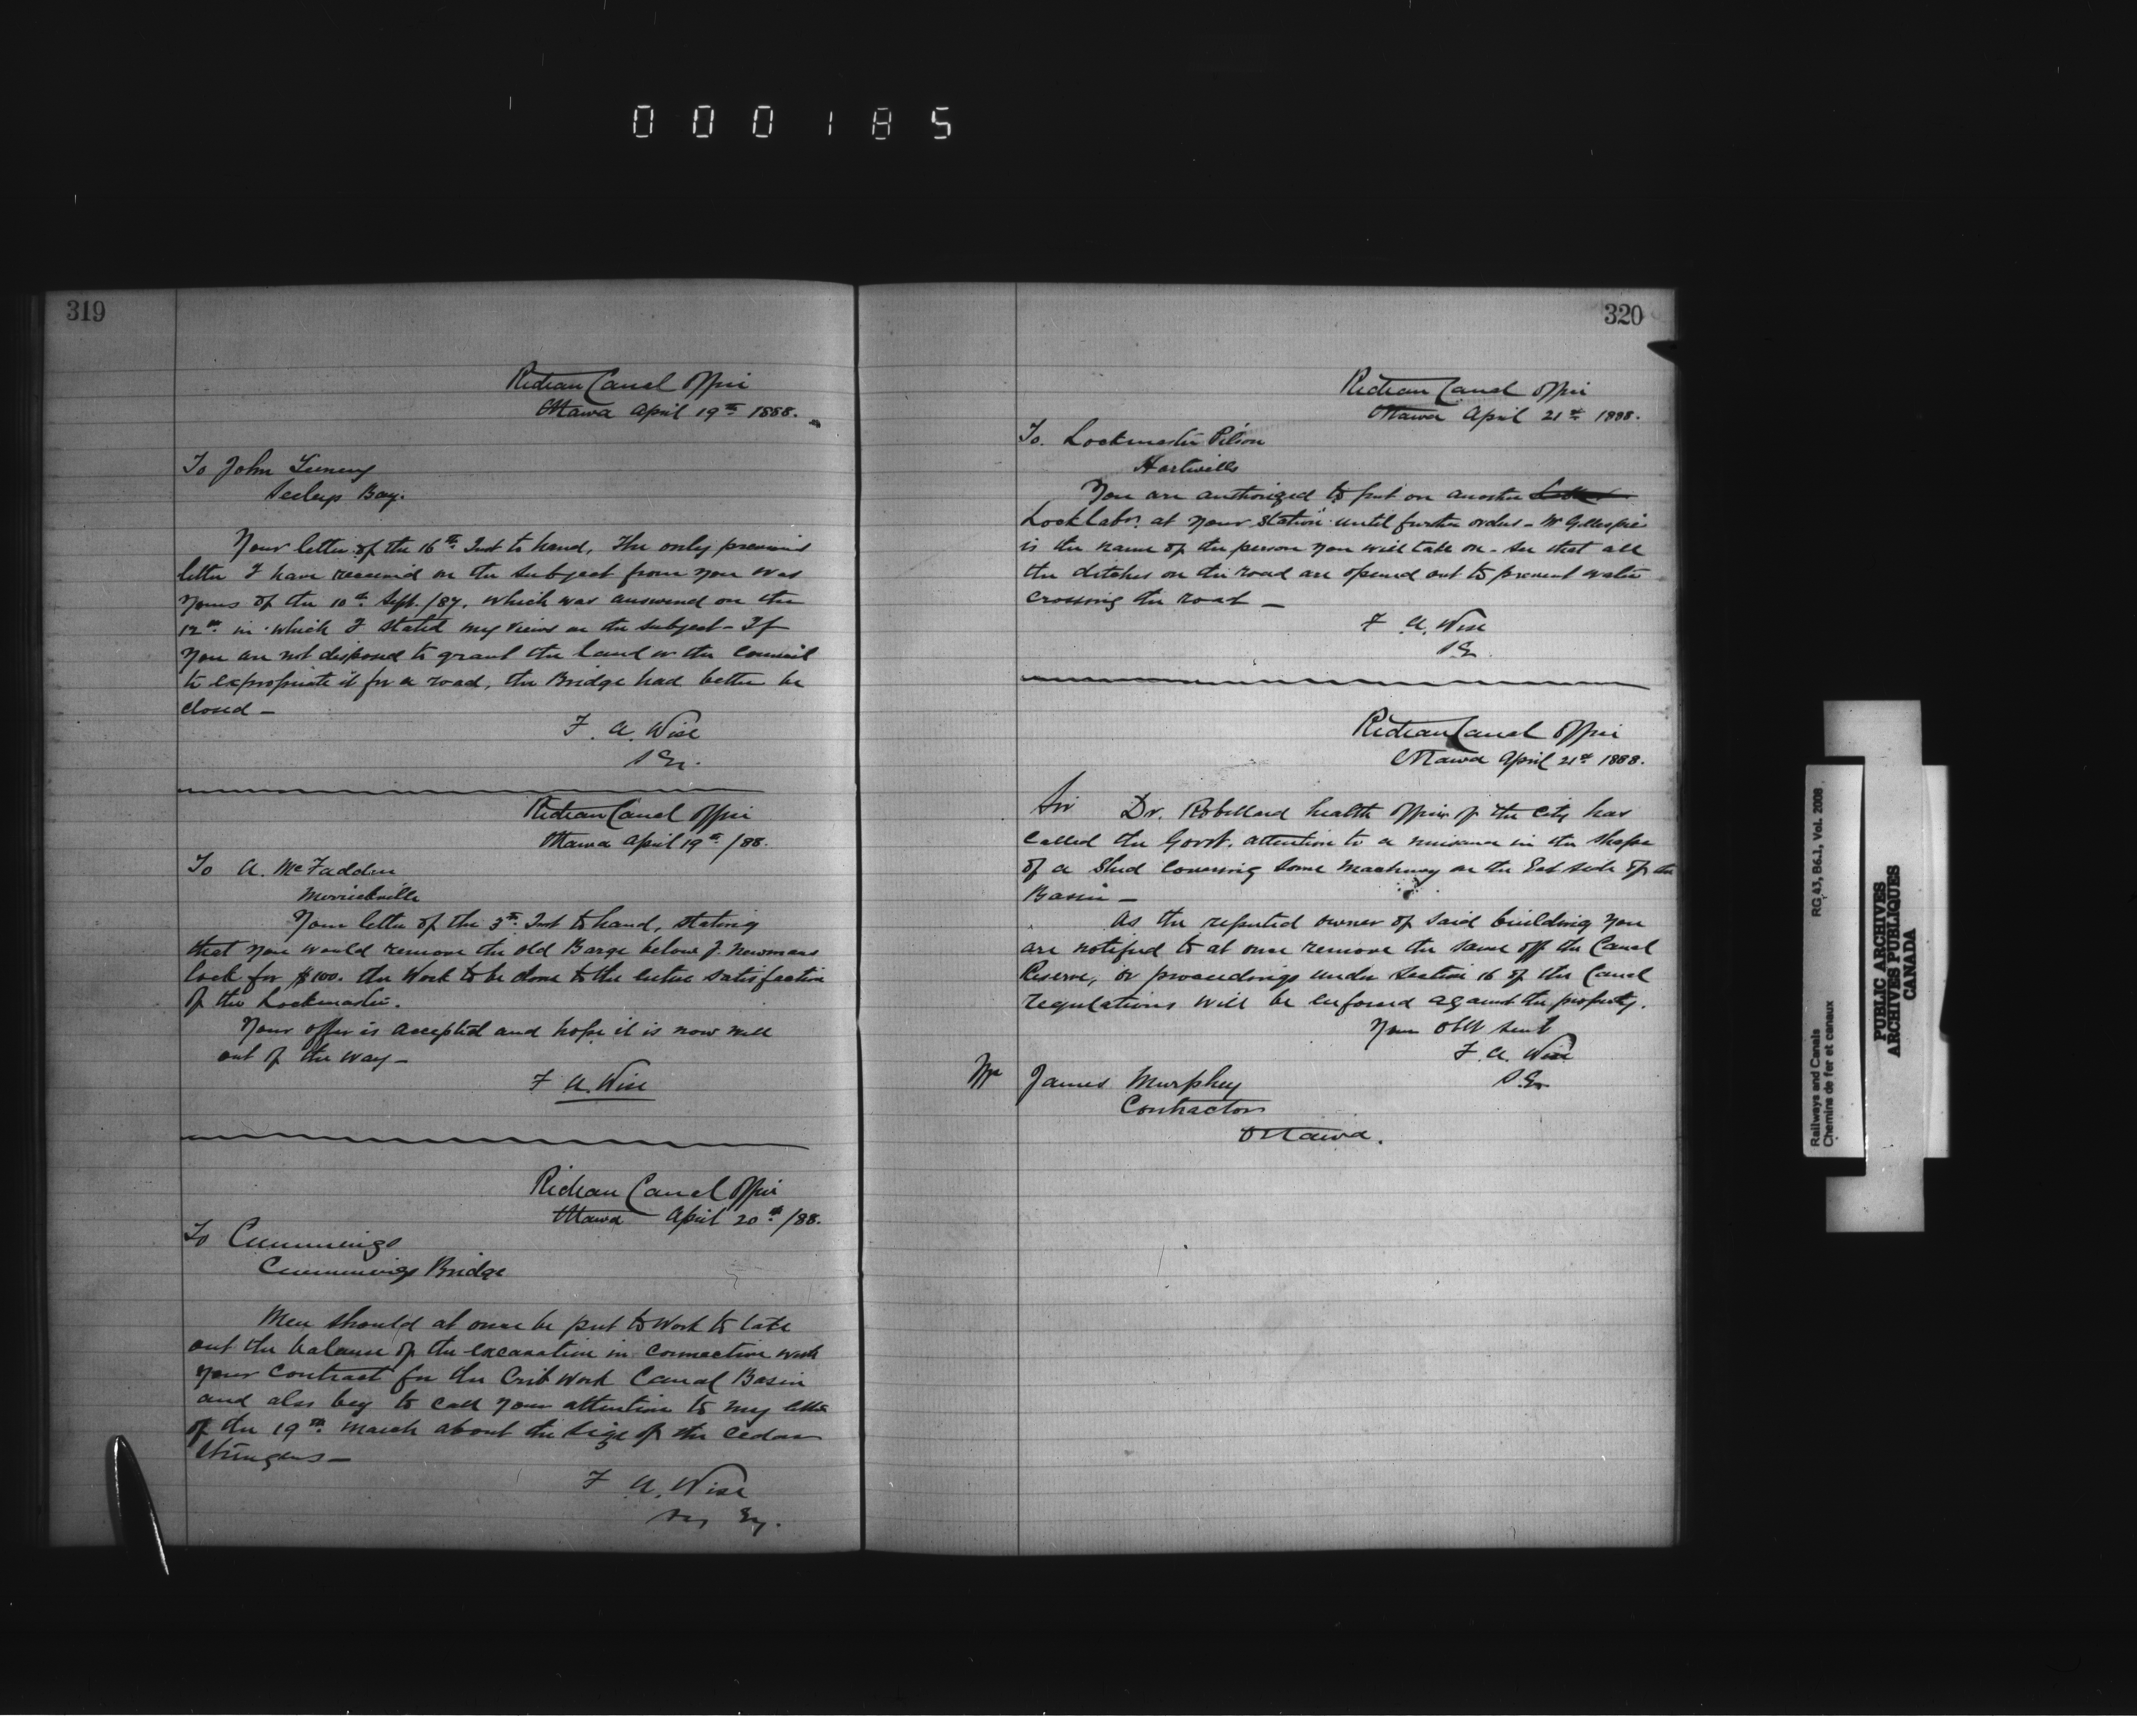 000185
319
Rideau Canal Office
Ottawa April 19th 1888.
To John
Seeleys Bay.
Your letter of the 16th Inst to hand, The only previous
letter I have received on the subject from you was
yours of the 10th Sept. /87, which was answered on the
12th in which I stated my views on the subject - If
you are not disposed to grant the land or the Council
to expropriate it for a road, the Bridge had better be
closed -
F. A. Wise
S Er.
Rideau Canal Office
Ottawa April 19th /88.
To A. McFadden
Merrickville
Your letter of the 3rd Inst to hand, stating
that you would remove the old Barge below J. Newmans
lock for $100. the Work to be done to the entire satisfaction
of the Lockmaster.
Your offer is accepted and hope it is now well
out of the way -
F A. Wise
Rideau Canal Office
Ottawa April 20th /88.
To Cummings
Cummings Bridge
Men should at once be put to Work to take
out the balance of the excavation in connection with
your contract for the Crib Work Canal Basin
and also beg to call your attention to my letter
of the 19th March about the size of the cedar
Stringers -
F A. Wise
320
Rideau Canal Office
Ottawa April 21st 1888.
To. Lockmaster Pilson
Hartwells
You are authorized to put on another
Lock Labr. at your Station until further orders - W Gillespie
is the name of the person you will take on - See that all
the ditches on the road are opened out to prevent water
crossing the road -
F A. Wise
S E.
Rideau Canal Office
Ottawa April 21st 1888.
Sir Dr. Robillard health officer of the City has
called the Govt. attention to a nuisance in the shape
of a Shed covering some machinery on the East side of the
Basin -
As the reputed owner of said building you
are notified to at once remove the same off the Canal
Reserve, or proceedings under Section 16 of the Canal
regulations will be enforced against the property.
Your obt sevt
F. A. Wise
S. Er
James Murphey
Contractor
Ottawa.
Railways and Canals RG 43, B6.1, Vol. 2008
Chemins de fer et canaux
PUBLIC ARCHIVES
ARCHIVES PUBLIQUES
CANADA